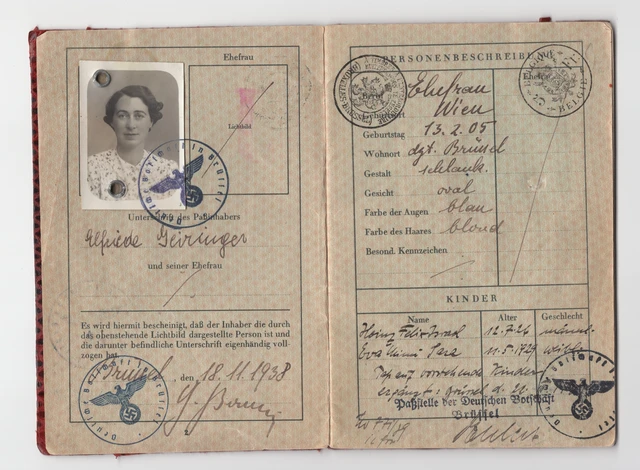 Ehefrau
Lichtbild
Unterschrift des Paßinhabers
Elfriede Geiringer
und seiner Ehefrau
Es wird hiermit bescheinigt, daß der Inhaber die durch
das obenstehende Lichtbild dargestellte Person ist und
die darunter befindliche Unterschrift eigenhändig voll-
zogen hat.
Brüssel, den 18.11.1938
2
PERSONENBESCHREIBUNG
Ehefrau
Beruf Ehefrau
Geburtsort Wien
Geburtstag 13.2.05
Wohnort dzt. Brüssel
Gestalt schlank.
Gesicht oval
Farbe der Augen blau
Farbe des Haares blond
Besond. Kennzeichen
KINDER
Name Alter Geschlecht
Heinz Felix Israel 12.7.26 männl.
Eva Sara 11.5.1929 weibl.
vorstehende Kinder
ergänzt: Brüssel d.
Paßstelle der Deutschen Botschaft
Brüssel
BELGIQUE
BELGIE